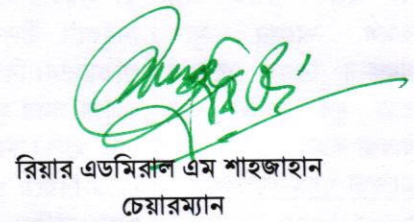 রিয়ার এডমিরাল এম শাহজাহান
চেয়ারম্যান